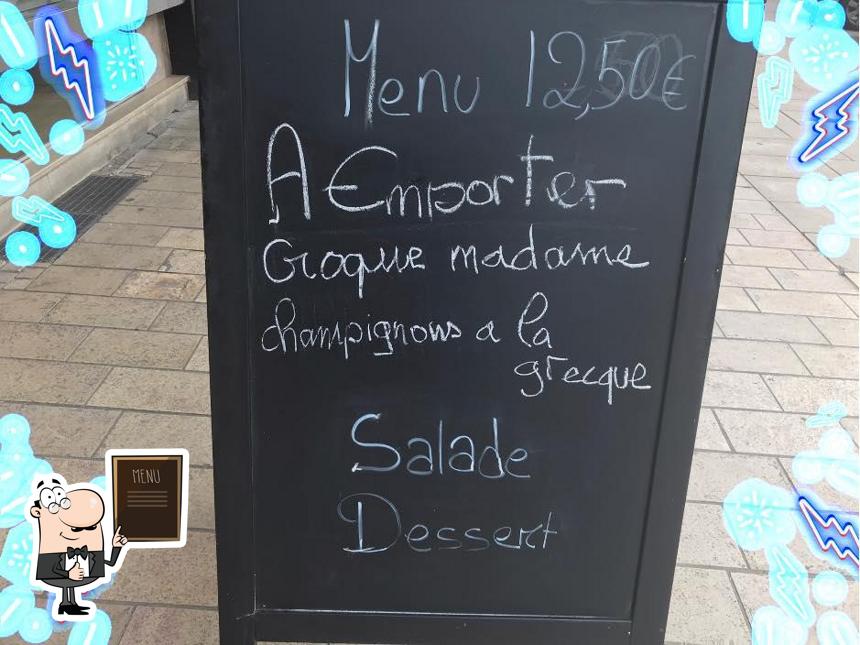 Menu 12,50€
A Emporter
Croque madame
champignons a la
grecque
Salade
Dessert
MENU